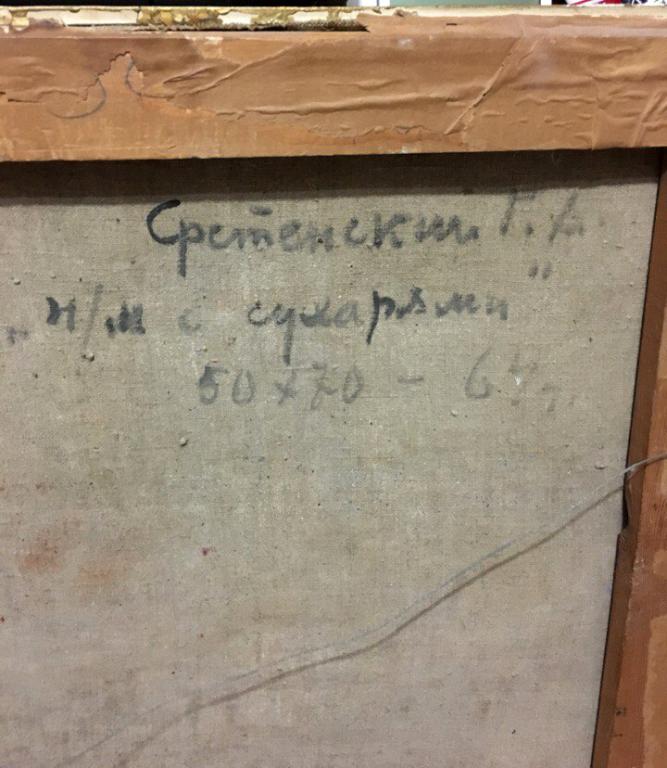 Сретенский Г. А.
„Н/м с сухарями"
50х70 - 64г.